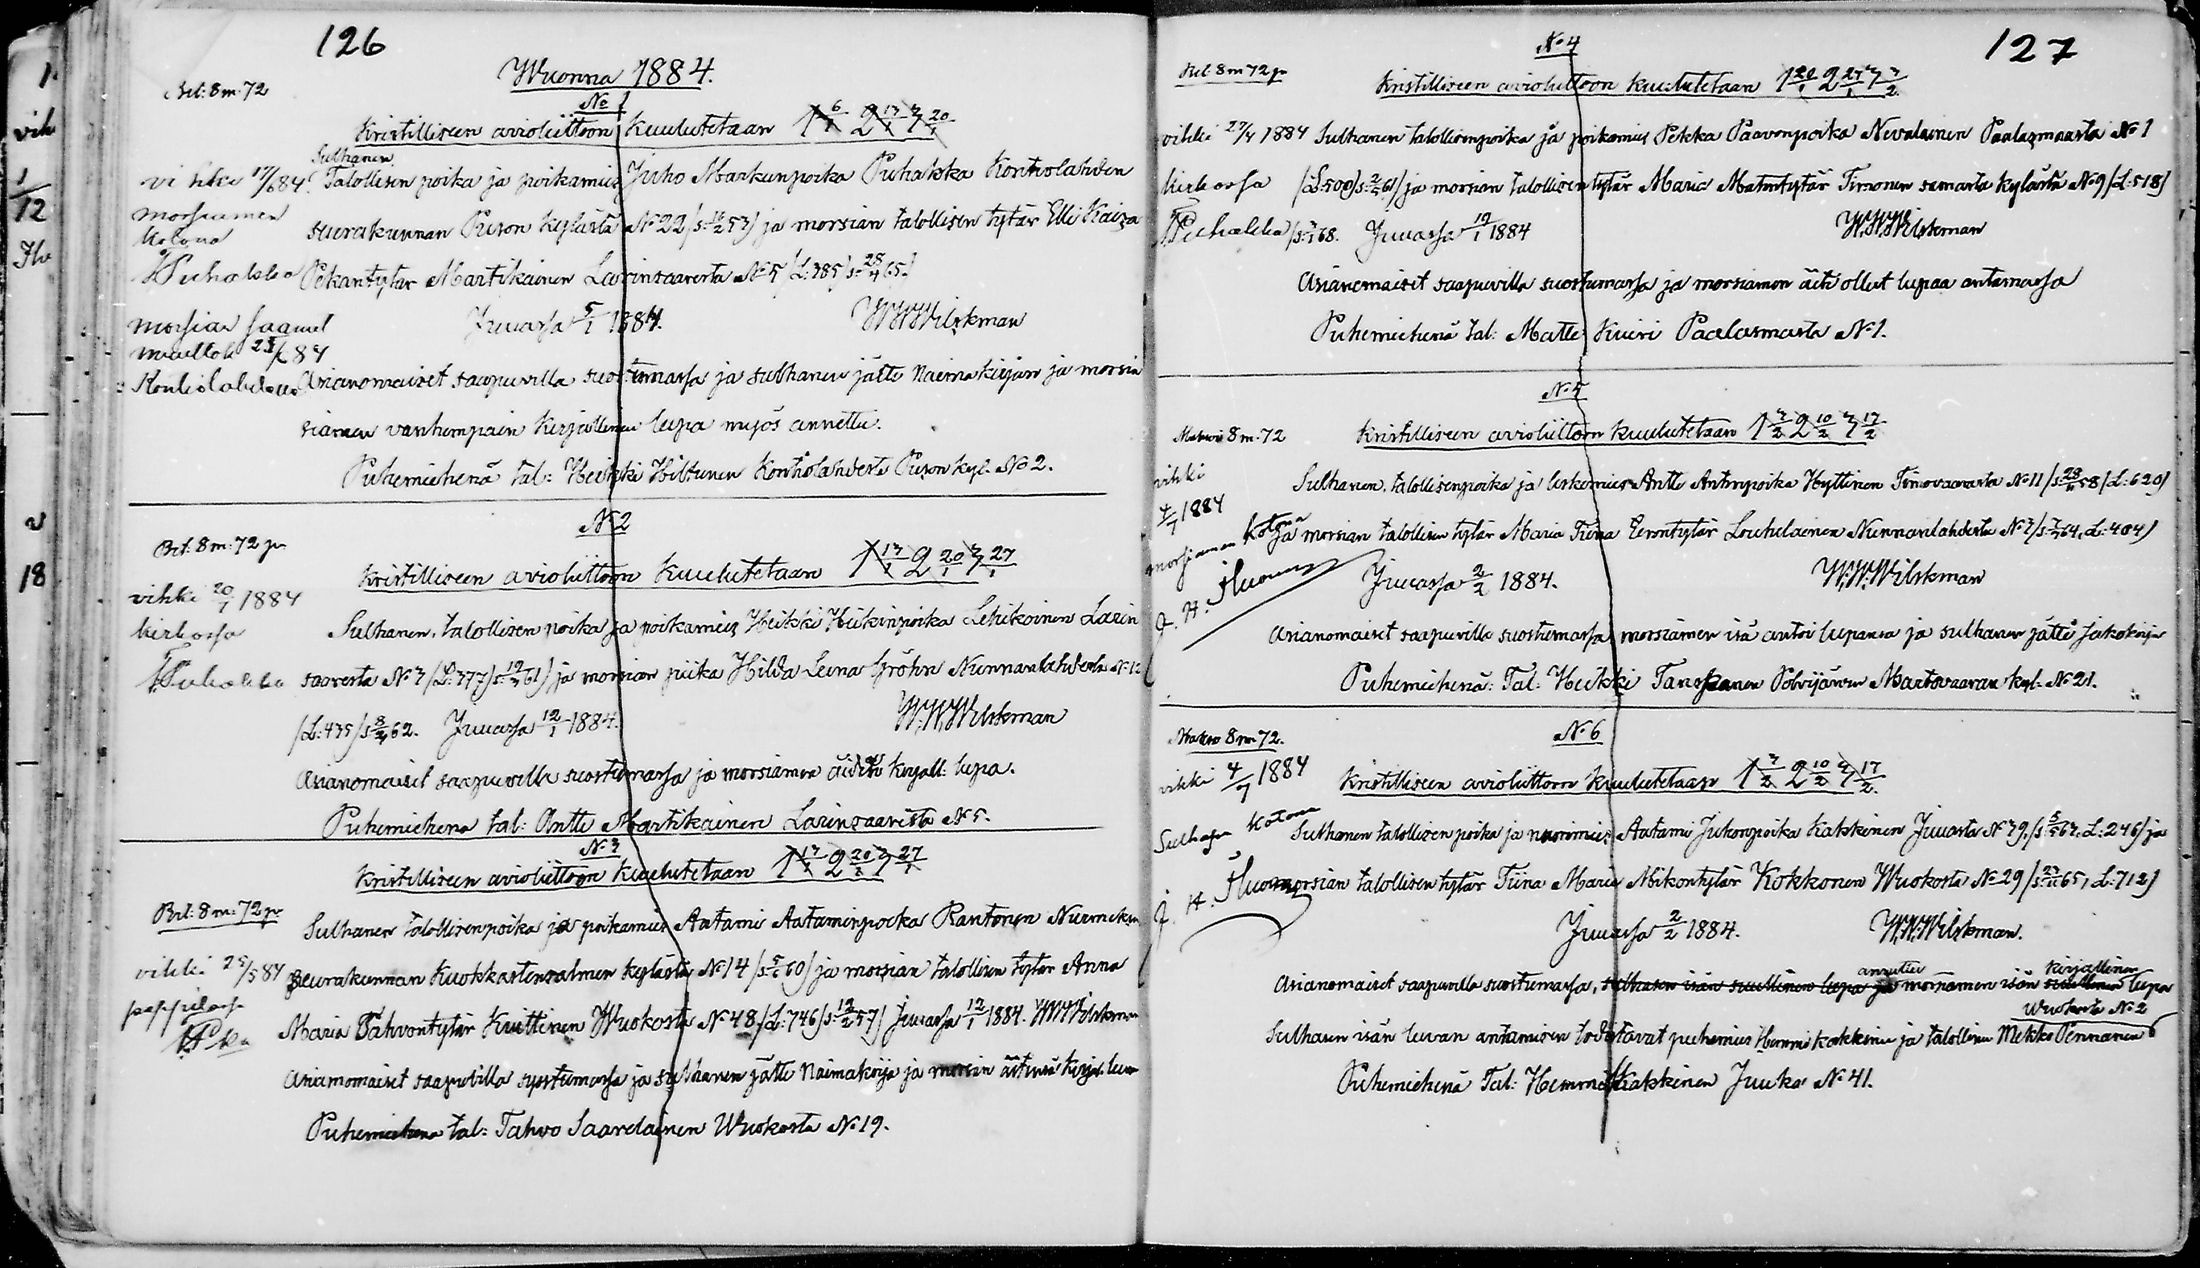 126
Wuonna 1884.
Bet: 8 m: 72
No 1
Kristilliseen avioliittoon kuulutetaan 1 6/1 2 13/1 3 20/1
Sulhanen
Talollisen poika ja poikamies Juho Markunpoika Puhakka Kontiolahden
seurakunnan Puson kylästä No 22 ja morsian talollisen tytär Elli Kaisa
Pekantytär Martikainen Larinsaaresta No 5 /L: 385/ s. 28/4 65/
Juuassa 5/1 1884. W.W.Wilskman
Asianomaiset saapuvilla suostumassa ja sulhanen jätti Naimakirjan ja morsia
siamen vanhempain kirjallinen lupa myös annettu.
Puhemiehenä tal: Heikki Hiltunen Kontiolahdesta Puson kyl. No 2.
vihki 17/6 84
morsiamen
kotona
Puhakka
morsian saanut
muuttok 25/6 84
Kontiolahdelle
No 2
Bet: 8 m: 72 p
Kristilliseen avioliittoon kuulutetaan 1 13/1 2 20/1 3 27/1
vihki 20/1 1884
kirkossa
Puhakka
Sulhanen, talollisen poika ja poikamies Heikki Heikinpoika Lehikoinen Larin
saaresta No 3 /L: 377/ s. 19/3 61) ja morsian piika Hilda Leena Gröhn Nunnanlahdesta No 12
/L: 435/ s. 8/2 62. Juuassa 12/1 1884. W.W.Wilskman
Asianomaiset saapuvilla suostumassa ja morsiamen äidin kirjall: lupa.
Puhemiehenä tal: Antti Martikainen Larinsaaresta No 5.
No 3
Kristilliseen avioliittoon kuulutetaan 1 13/1 2 20/1 3 27/1
Bet: 8 m: 72 p
vihki 25/5 84
pappilassa
Sulhanen talollisenpoika ja poikamies Aatami Aataminpoika Rantonen Nurmeksen
seurakunnan Kuokkastensalmen kylästä No 14 /s. 5/6 60/ ja morsian talollisen tytär Anna
Maria Tahvontytär Kuittinen Wuokosta No 48 /L: 746/ s. 12/2 57/ Juuassa 12/1 1884. W.W.Wilskman
Asianomaiset saapuvilla suostumassa ja sulhanen jätti Naimakirja ja morsian äitinsä kirjal. luvan
Puhemiehenä tal: Tahvo Saarelainen Wuokosta No 19.
127
No 4
Bet: 8 m 72 p
Kristilliseen avioliittoon kuulutetaan 1 20/1 2 27/1 3 3/2
vihki 27/4 1884
kirkossa
Puhakka
Sulhanen talollisenpoika ja poikamies Pekka Paavonpoika Nevalainen Paalasmaasta No 1
/L: 500/ s. 2/5 61/ ja morsian talollisen tytär Maria Matintytär Timonen samasta kylästä No 9 /L: 518/
Juuassa 19/1 1884 W.W.Wilskman
Asianomaiset saapuvilla suostumassa ja morsiamen äiti ollut lupaa antamassa
Puhemiehenä tal: Matti Kuiri Paalasmasta No 1.
No 5
Maksoi 8 m: 72
Kristilliseen avioliittoon kuulutetaan 1 3/2 2 10/2 3 17/2
vihki
4/7 1884
morsiamen kotona
Sulhanen, talollisenpoika ja leskimies Antti Antinpoika Hyttinen Timovaarasta No 11 /s. 28/11 58 /L: 620/
ja morsian talollisen tytär Maria Tiina Eerontytär Louhelainen Nunnanlahdesta No 3 /s. 7/7 64, L: 404)
Juuassa 2/2 1884. W.W.Wilskman
Asianomaiset saapuvilla suostumassa, morsiamen isä antoi lupansa ja sulhanen jätti Jakokirja
Puhemiehenä: Tal: Heikki Tanskanen Polvijärven Martovaaran kyl. No 21.
No 6
Maksoi 8 m: 72.
vihki 4/7 1884
Sulhasen kotona
Kristilliseen avioliittoon kuulutetaan 1 3/2 2 10/2 3 17/2
Sulhanen talollisen poika ja nuorimies Aatami Juhonpoika Kakkinen Juuasta No 39, /s. 5/5 63, L: 246/ ja
morsian talollisen tytär Tiina Maria Mikontytär Kokkonen Wuokosta No 29 /s. 23/11 65, L: 712)
Juuassa 2/2 1884. W.W.Wilskman.
Asianomaiset saapuvilla suostumassa, sulhasen isän suullinen lupa ja morsiamen isän kirjallinen lupa
annettu
Wuokosta No 2
Sulhasen isän luvan antamisen todistavat puhemies Hemmi Kakkinen ja talollinen Mikko Pennanen
Puhemiehenä Tal: Hemmi Kakkinen Juuka No 41.